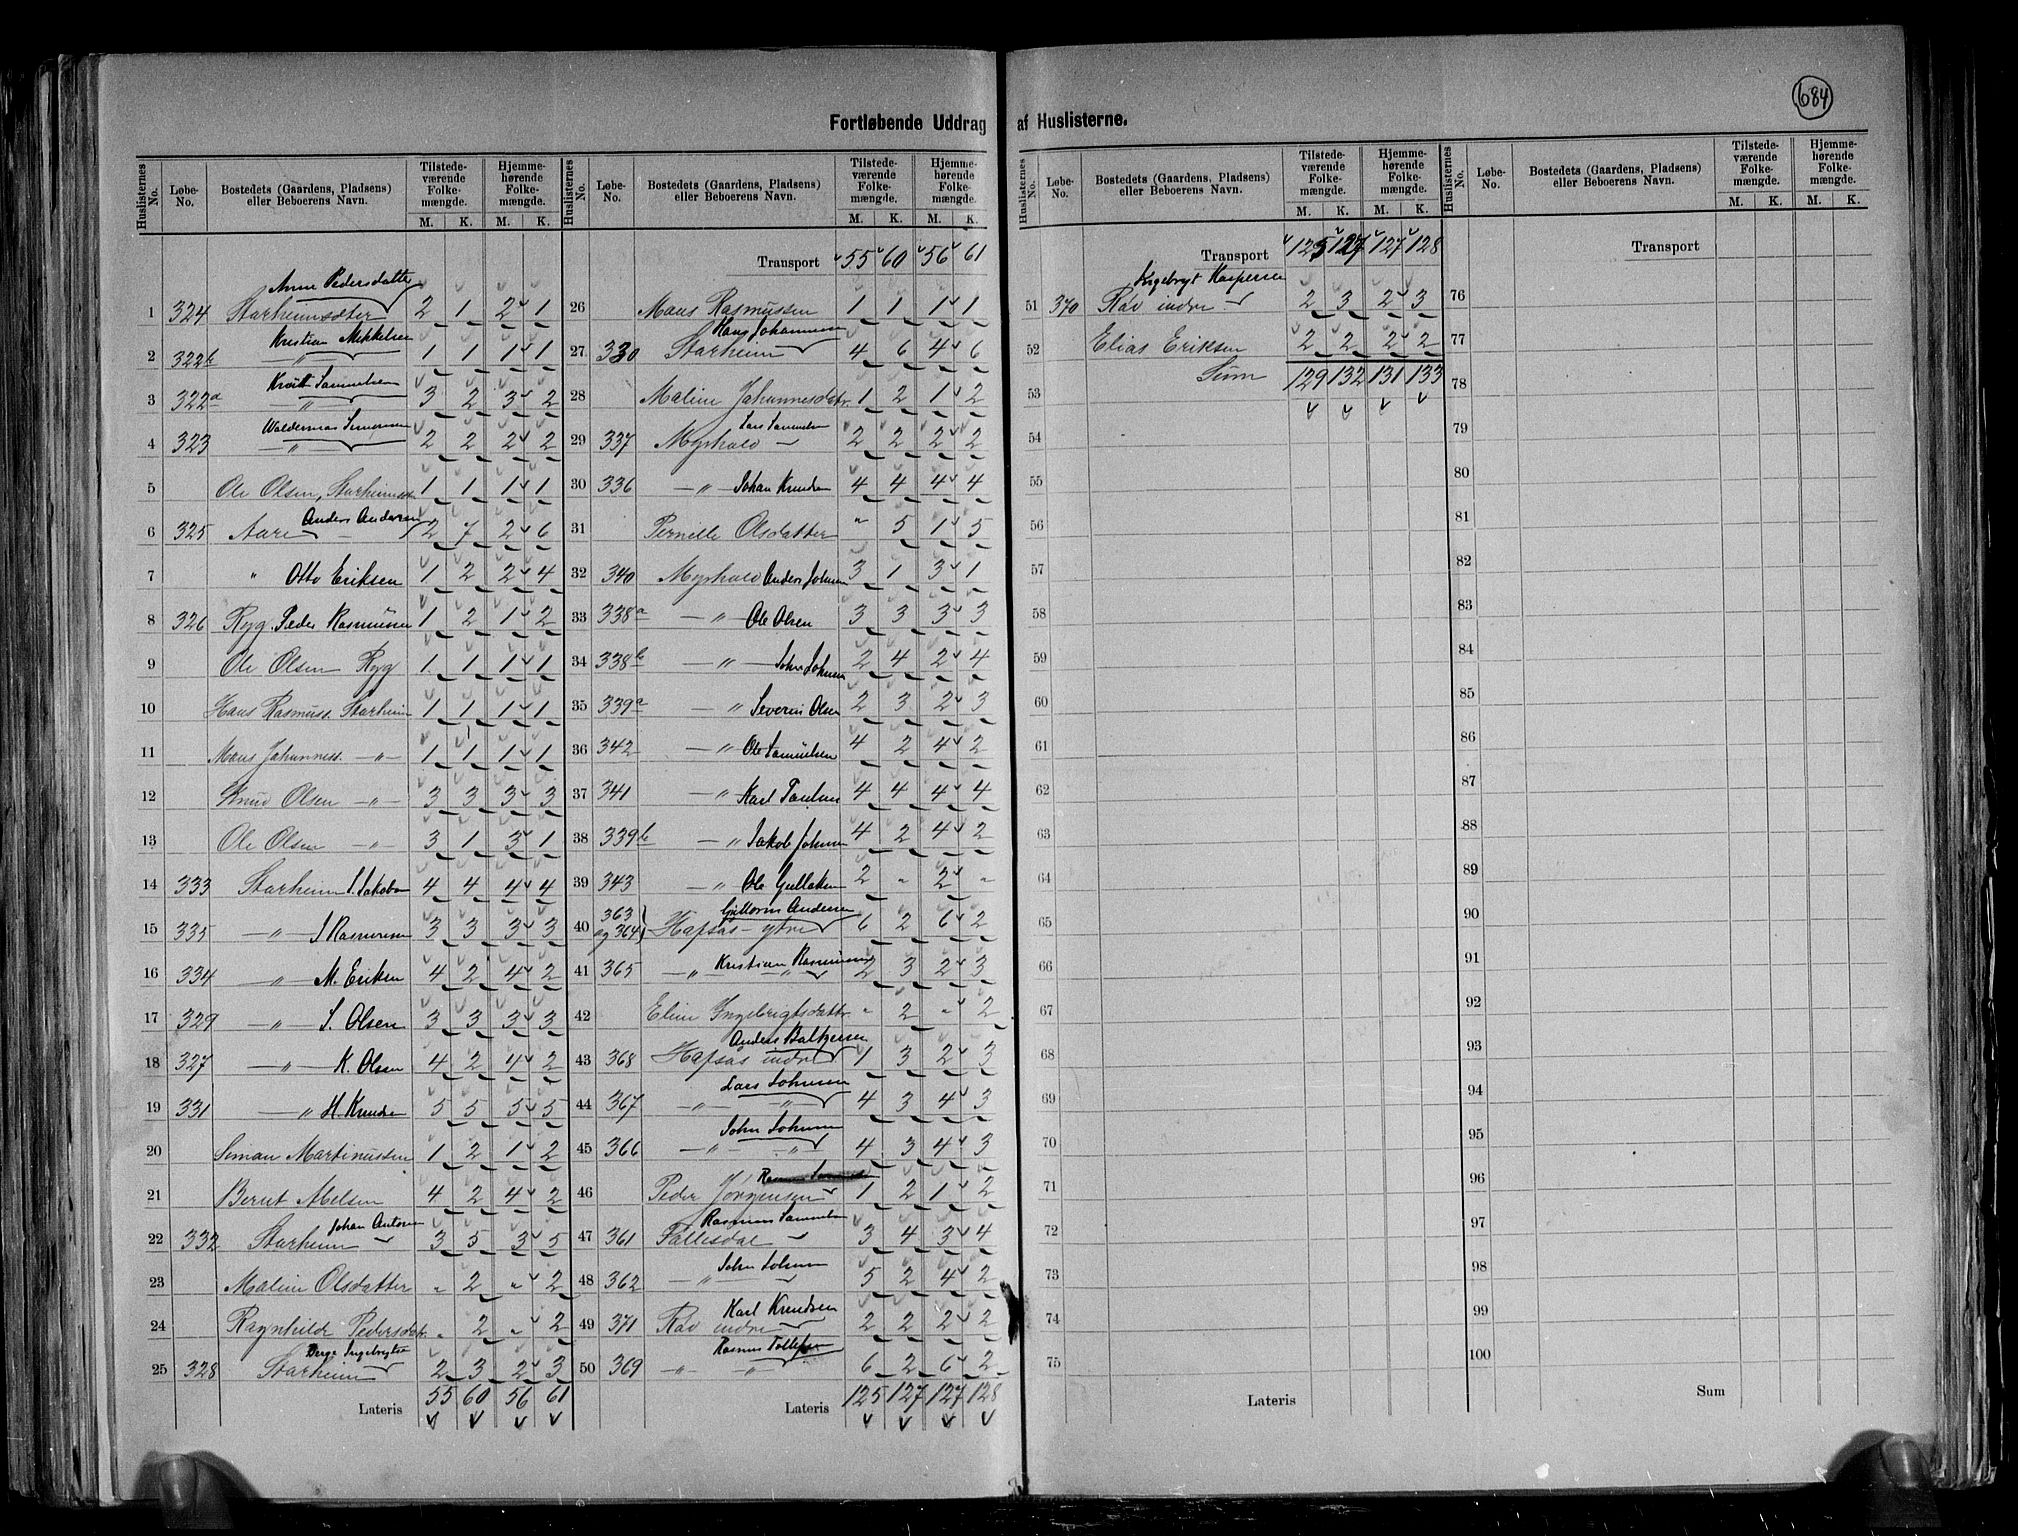 684
Fortløbende Uddrag af Huslisterne.
Huslisternes No. Løbe-No. Bostedets (Gaardens, Pladsens) eller Beboerens Navn. Tilstedeværende Folkemængde. M. K. Hjemmehørende Folkemængde. M. K.
1 324 Anne Pedersdatter Starheimsæter 2 1 2 1
2 322b Kristian Mikkelsen — " — 1 1 1 1
3 322a Knut Samuelsen — " — 3 2 3 2
4 323 Waldemar Simonsen — " — 2 2 2 2
5 Ole Olsen, Starheimsæter 1 1 1 1
6 325 Aare Anders Andersen 2 7 2 6
7 " Otto Eriksen 1 2 2 4
8 326 Ryg Peder Rasmusen 1 2 1 2
9 Ole Olsen Ryg 1 1 1 1
10 Hans Rasmuss. Starheim 1 1 1 1
11 Mons Johanness. — " — 1 1 1 1
12 Knud Olsen — " — 3 3 3 3
13 Ole Olsen — " — 3 1 3 1
14 333 Starheim S. Jakobsen 4 4 4 4
15 335 — " — S Rasmusen 3 3 3 3
16 334 — " — M. Eriksen 4 2 4 2
17 329 — " — S. Olsen 3 3 3 3
18 327 — " — K. Olsen 4 2 4 2
19 331 — " H. Knudsen 5 5 5 5
20 Simon Martinussen 1 2 1 2
21 Berut Melsen 4 2 4 2
22 332 Starheim Johan Antonsen 3 5 3 5
23 Maline Olsdatter " 2 " 2
24 Ragnhilde Pedersdatr. " 2 " 2
25 328 Starheim Ingebrigts 2 3 2 3
Lateris 55 60 56 61
Huslisternes No. Løbe-No. Bostedets (Gaardens, Pladsens) eller Beboerens Navn. Tilstedeværende Folkemængde. M. K. Hjemmehørende Folkemængde. M. K.
Transport 55 60 56 61
26 Mons Rasmussen 1 1 1 1
27 330 Hans Johannesen Starheim 4 6 4 6
28 Maline Johannesdatr. 1 2 1 2
29 337 Myrhold Lars Samuelsen 2 2 2 2
30 336 — " Johan Knudsen 4 4 4 4
31 Pernille Olsdatter " 5 1 5
32 340 Myrhold Anders Johnsen 3 1 3 1
33 338a — " — Ole Olsen 3 3 3 3
34 338b — " — John Johnsen 2 4 2 4
35 339a — " Severin Olsen 2 3 2 3
36 342 — " Ole Samuelsen 4 2 4 2
37 341 — " Karl Paulsen 4 4 4 4
38 339b — " Jakob Johnsen 4 2 4 2
39 343 — " Ole Gullaksen 2 " 2 "
40 363 og 364 Guttorm Andersen Hafsås ytre 6 2 6 2
41 365 — " — Kristian Rasmussen 2 3 2 3
42 Eline Ingebrigtsdatr. " 2 " 2
43 368 Anders Baltzersen Hafsås indre 1 3 2 3
44 367 Lars Johnsen — " — " — 4 3 4 3
45 366 John Johnsen — " — " 4 3 4 3
46 Peder Jørgensen 1 2 1 2
47 361 Rasmus Samuelsen Tollesdal 3 4 3 4
48 362 John Johnsen — " — 5 2 4 2
49 371 Karl Knudsen Rov indre 2 2 2 2
50 369 Rasmus Tollefsen — " — " 6 2 6 2
Lateris 125 127 127 128
Huslisternes No. Løbe-No. Bostedets (Gaardens, Pladsens) eller Beboerens Navn. Tilstedeværende Folkemængde. M. K. Hjemmehørende Folkemængde. M. K.
Transport 125 127 127 128
51 370 Kaspersen Rov indre 2 3 2 3
52 Elias Eriksen 2 2 2 2
53 Sum 129 132 131 133
54
55
56
57
58
59
60
61
62
63
64
65
66
67
68
69
70
71
72
73
74
75
Lateris
Huslisternes No. Løbe-No. Bostedets (Gaardens, Pladsens) eller Beboerens Navn. Tilstedeværende Folkemængde. M. K. Hjemmehørende Folkemængde. M. K.
Transport
76
77
78
79
80
81
82
83
84
85
86
87
88
89
90
91
92
93
94
95
96
97
98
99
100
Sum